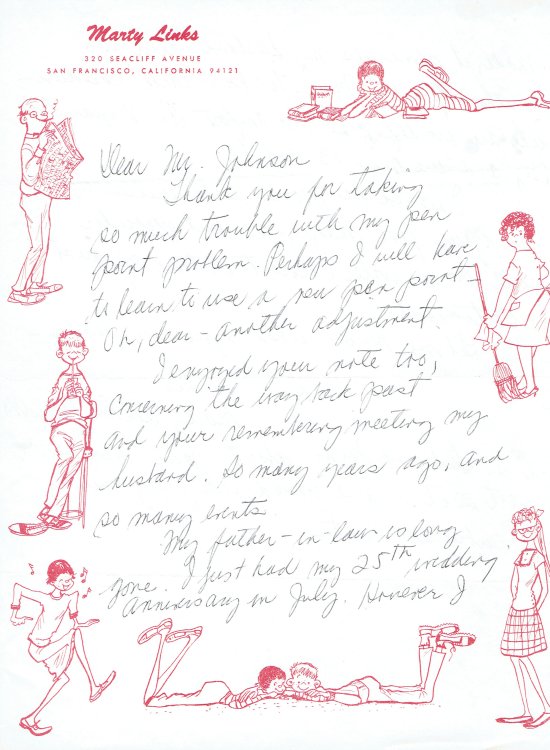 Marty Links
320 SEACLIFF AVENUE
SAN FRANCISCO, CALIFORNIA 94121
Dear Mr. Johnson
Thank you for taking
so much trouble with my pen
point problem. Perhaps I will have
to learn to use a new pen point -
Oh, dear - another adjustment.
I enjoyed your note too,
concerning the way back past
and your remembering meeting my
husband. So many years ago, and
so many events.
My father-in-law is long
gone. I just had my 25th wedding
anniversary in July. However I